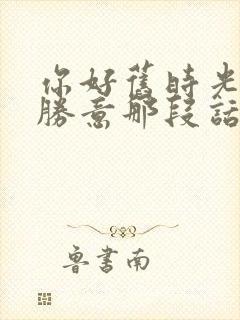 你好舊時光
勝意那段話
魯書南